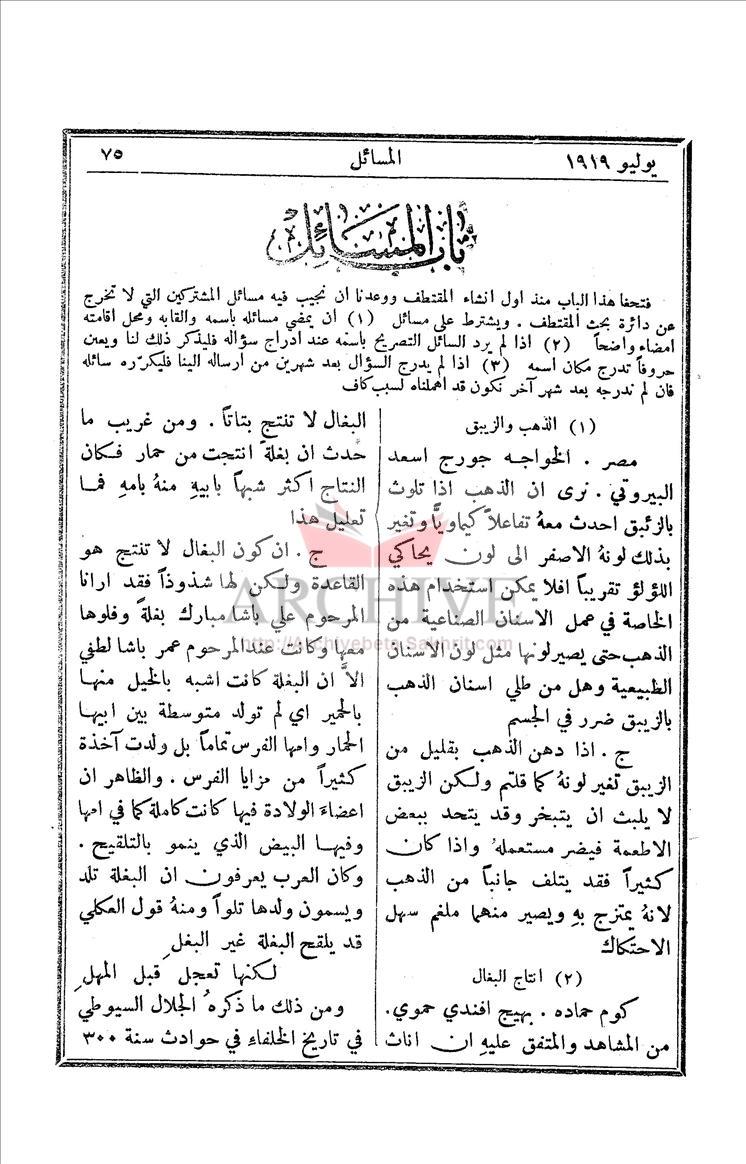 يوليو ١٩١٩
المسائل
٧٥
باب المسائل
فتحنا هذا الباب منذ اول انشاء المقتطف ووعدنا ان نجيب فيه مسائل المشتركين التي لا تخرج
عن دائرة بحث المقتطف . ويشترط على سائل (١) ان يمضي مسائله باسمه والقابه ومحل اقامته
امضاء واضحاً (٢) اذا لم يرد السائل التصريح باسمه عند ادراج سؤاله فليذكر ذلك لنا ويعين
حروفاً تدرج مكان اسمه (٣) اذا لم يدرج السؤال بعد شهرين من ارساله الينا فليكرّره سائله
فان لم ندرجه بعد شهر آخر نكون قد اهملناه لسبب كاف
(١) الذهب والزيبق
مصر . الخواجه جورج اسعد
البيروتي . نرى ان الذهب اذا تلوث
بالزئبق احدث معهُ تفاعلاً كيماويًّا وتغير
بذلك لونهُ الاصفر الى لون يحاكي
اللؤلؤ تقريباً افلا يمكن استخدام هذه
الخاصة في عمل الاسنان الصناعية من
الذهب حتى يصير لونها مثل لون الاسنان
الطبيعية وهل من طلي اسنان الذهب
بالزيبق ضرر في الجسم
ج . اذا دهن الذهب بقليل من
الزيبق تغير لونهُ كما قلتم ولكن الزيبق
لا يلبث ان يتبخر وقد يتحد ببعض
الاطعمة فيضر مستعملهُ واذا كان
كثيراً فقد يتلف جانباً من الذهب
لانهُ يمتزج بهِ ويصير منهما ملغم سهل
الاحتكاك
(٢) انتاج البغال
كوم حماده . بهيج افندي حموي .
من المشاهد والمتفق عليهِ ان اناث
البغال لا تنتج بتاتاً . ومن غريب ما
حدث ان بغلة انتجت من حمار فكان
النتاج اكثر شبهاً بابيهِ منهُ بامهِ فما
تعليل هذا
ج . ان كون البغال لا تنتج هو
القاعدة ولكن لها شذوذاً فقد ارانا
المرحوم علي باشا مبارك بغلةً وفلوها
معها وكانت عند المرحوم عمر باشا لطفي
الاَّ ان البغلة كانت اشبه بالخيل منها
بالحمير اي لم تولد متوسطة بين ابيها
الحمار وامها الفرس تماماً بل ولدت آخذة
كثيراً من مزايا الفرس . والظاهر ان
اعضاءَ الولادة فيها كانت كاملة كما في امها
وفيها البيض الذي ينمو بالتلقيح .
وكان العرب يعرفون ان البغلة تلد
ويسمون ولدها تلواً ومنهُ قول العكلي
قد يلقح البغلة غير البغلِ
لكنها تعجل قبل المهلِ
ومن ذلك ما ذكرهُ الجلال السيوطي
في تاريخ الخلفاءِ في حوادث سنة ٣٠٠
ARCHIVE
http://Archivebeta.Sakhrit.com